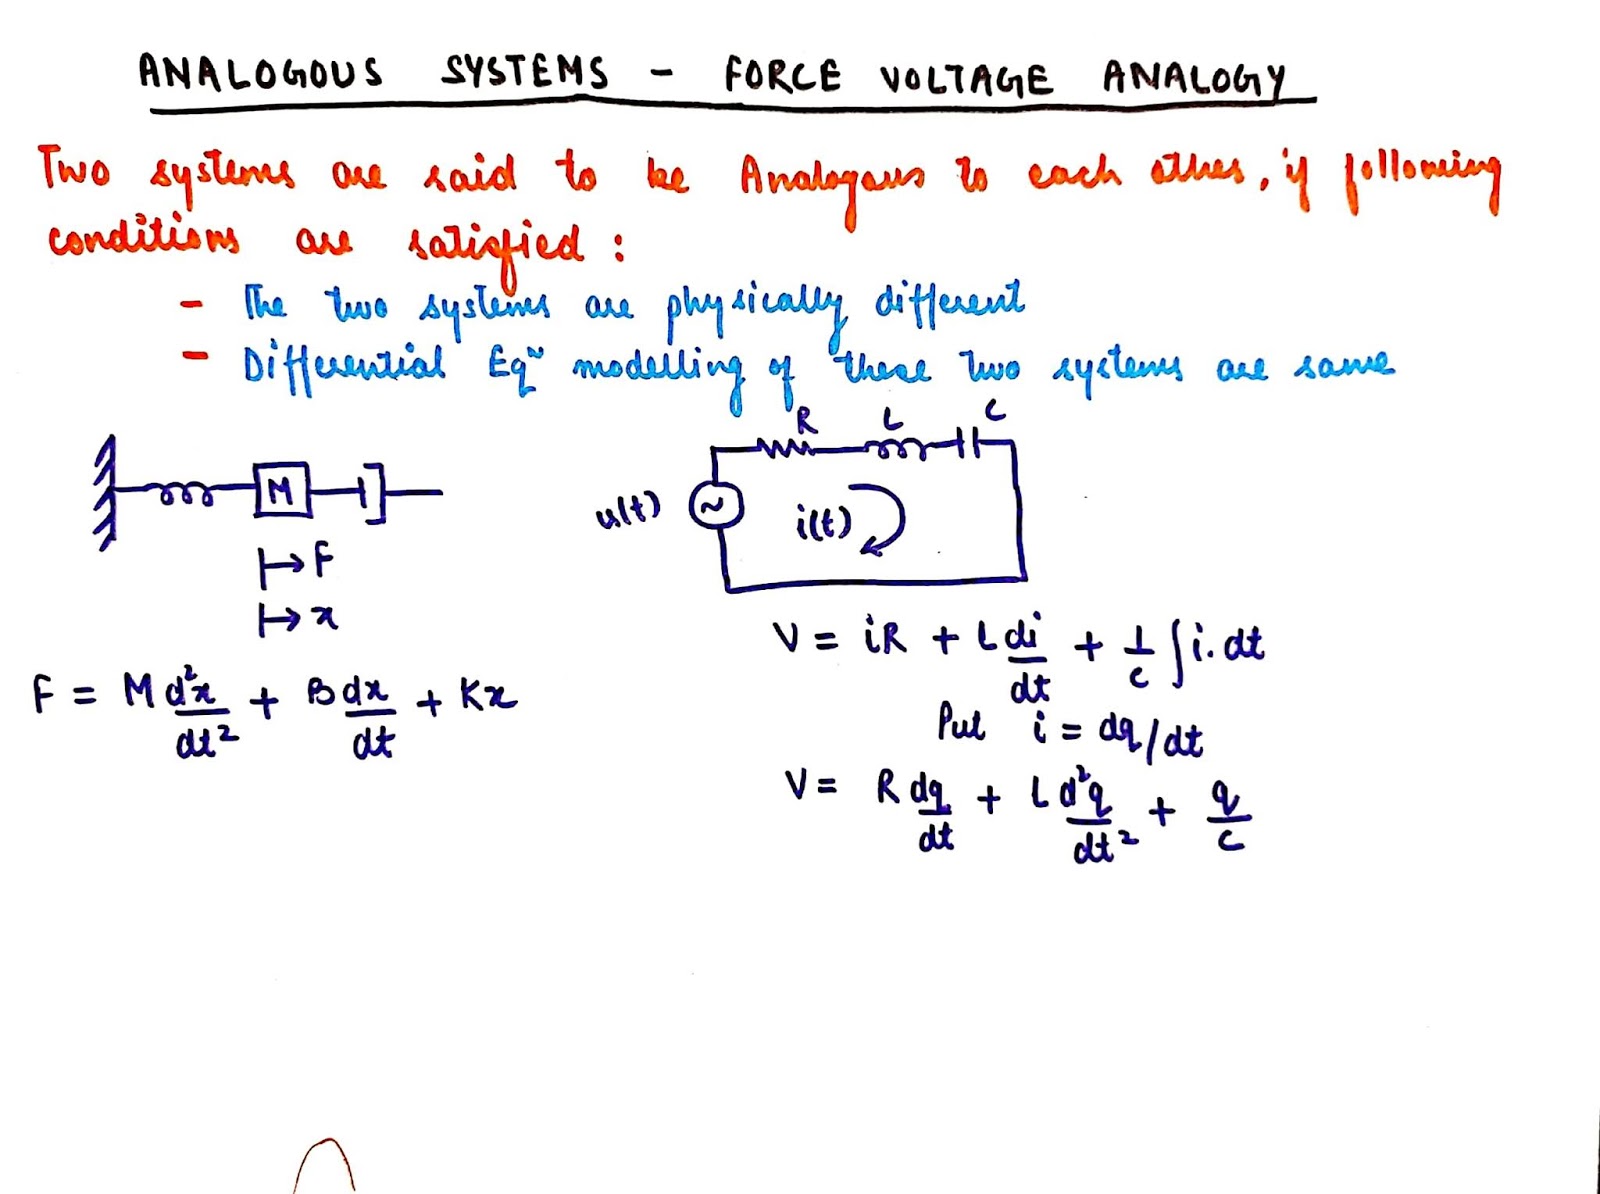 ANALOGOUS SYSTEMS - FORCE VOLTAGE ANALOGY
Two systems are said to be Analogous to each other, if following
conditions are satisfied :
- The two systems are physically different
- Differential Eqⁿ modelling of these two systems are same
R L C
M
u(t) ~ i(t)
F
x
F = M d²x/dt² + B dx/dt + Kx
V = iR + L di/dt + 1/c ∫i. dt
Put i = dq/dt
V = R dq/dt + L d²q/dt² + q/c